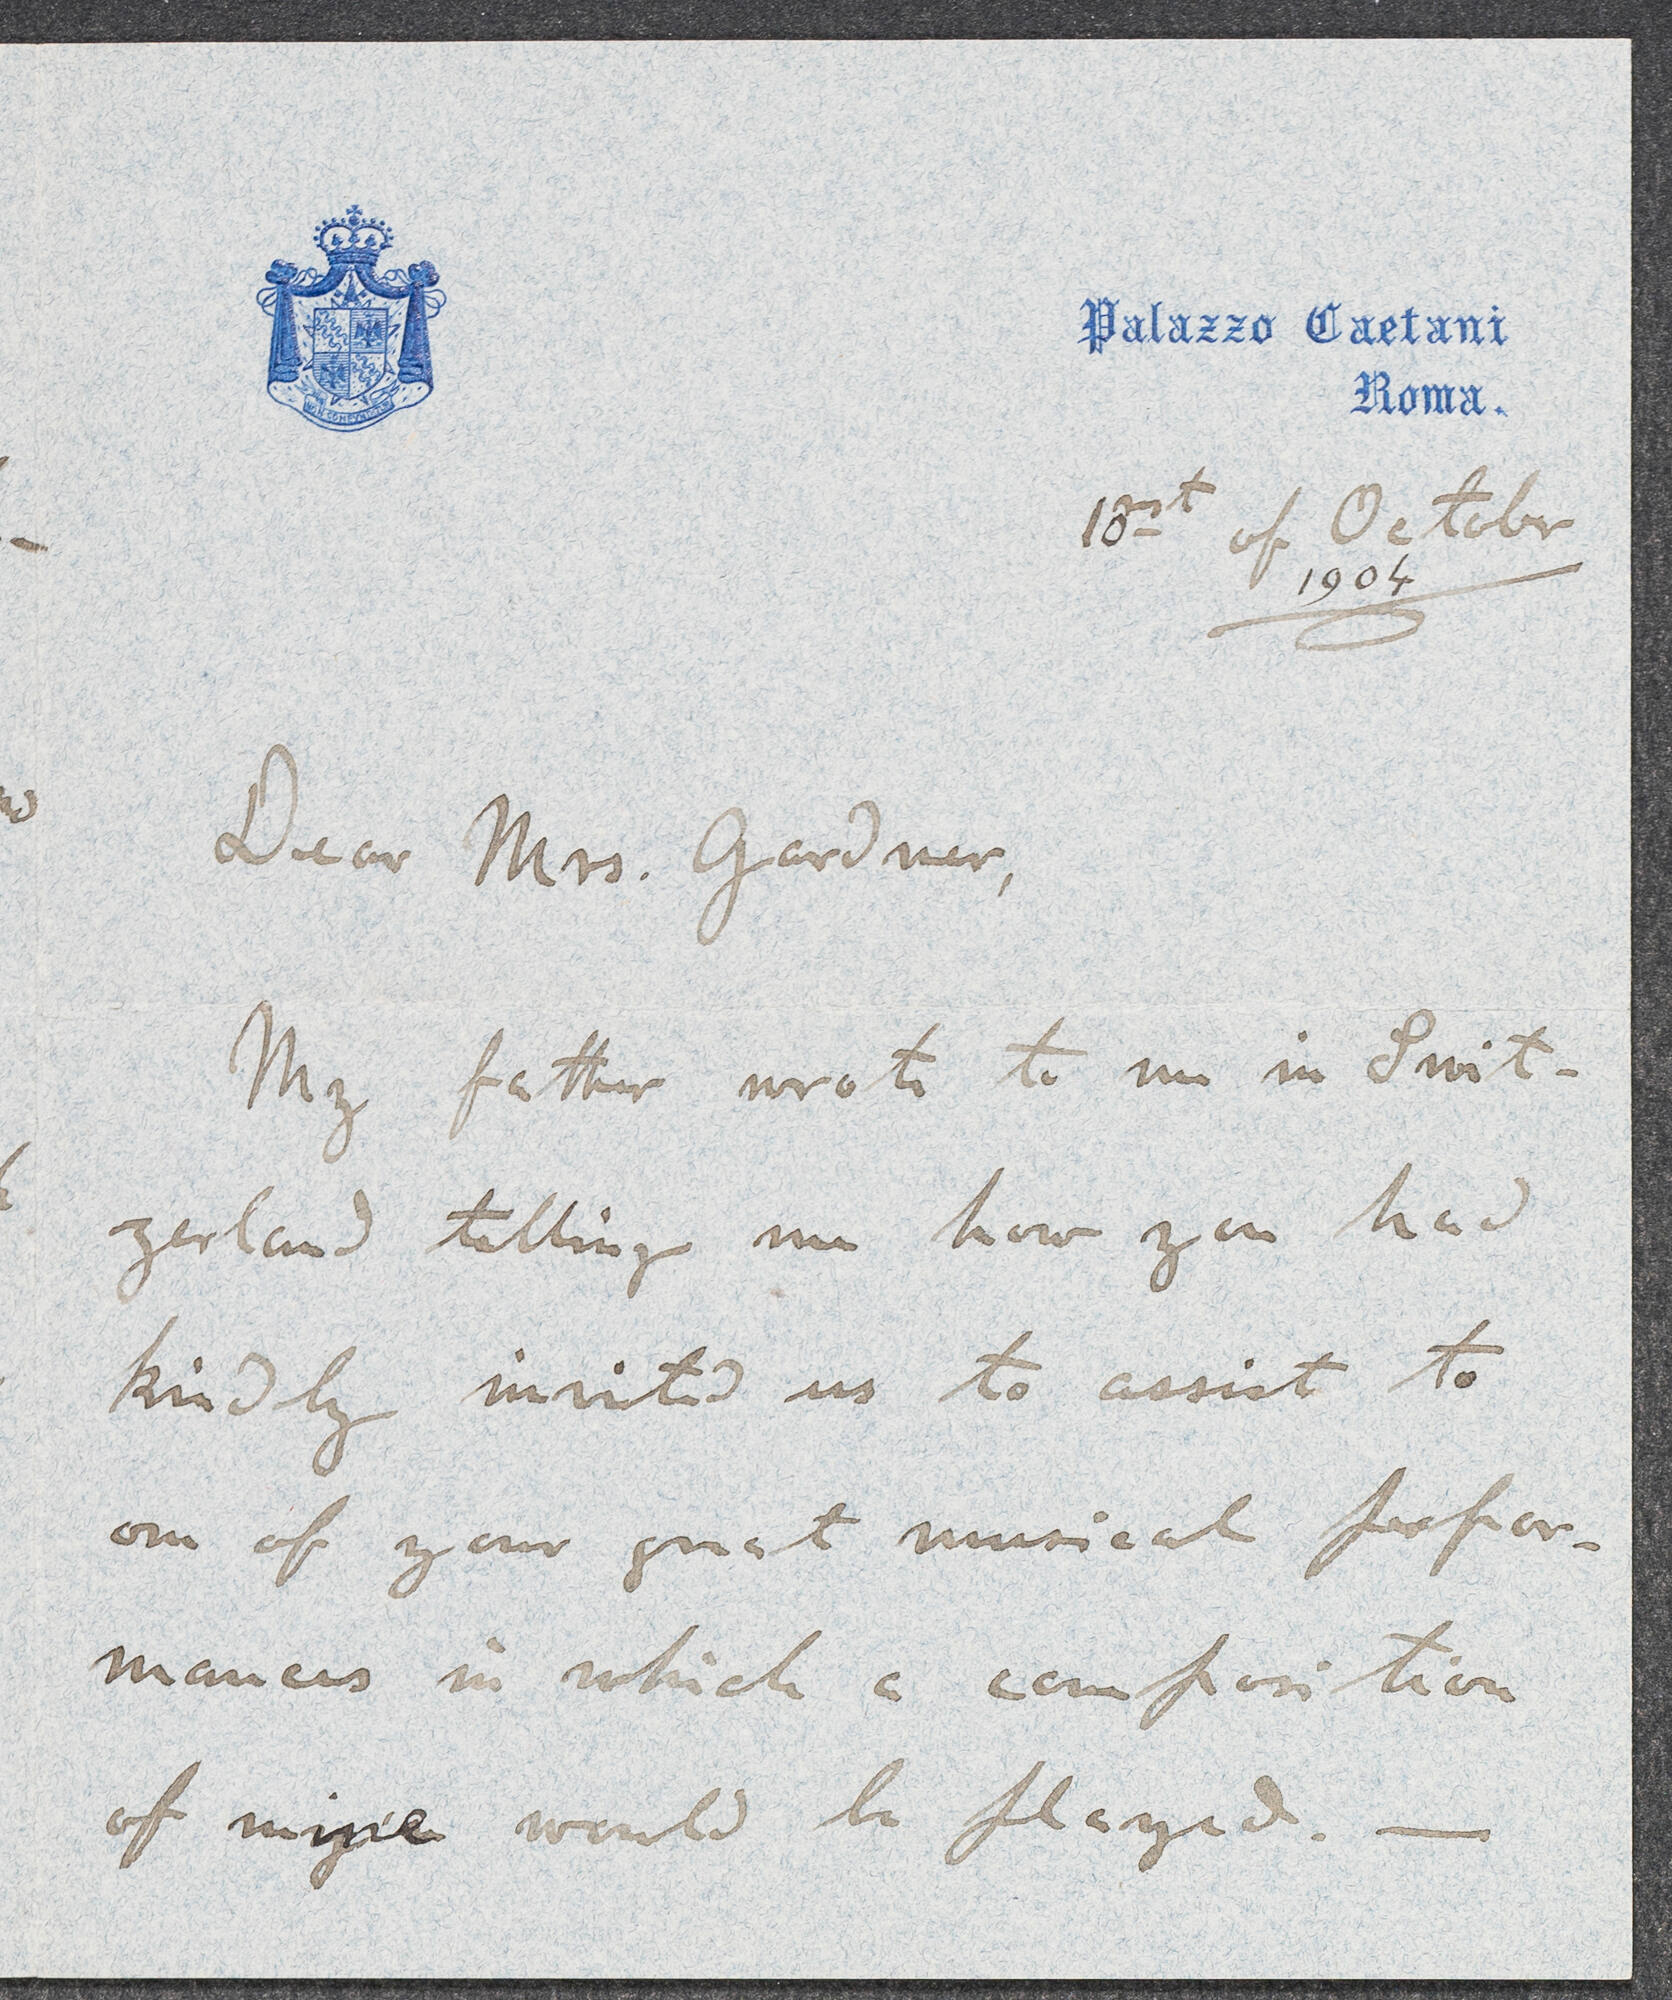 Palazzo Caetani
Roma.
of October
1904
Dear Mrs. Gardner,
My father wrote to me in Swit-
zerland telling me how you had
kindly invited us to assist to
one of your great musical perfor-
mances in which a composition
of mine would be played. —